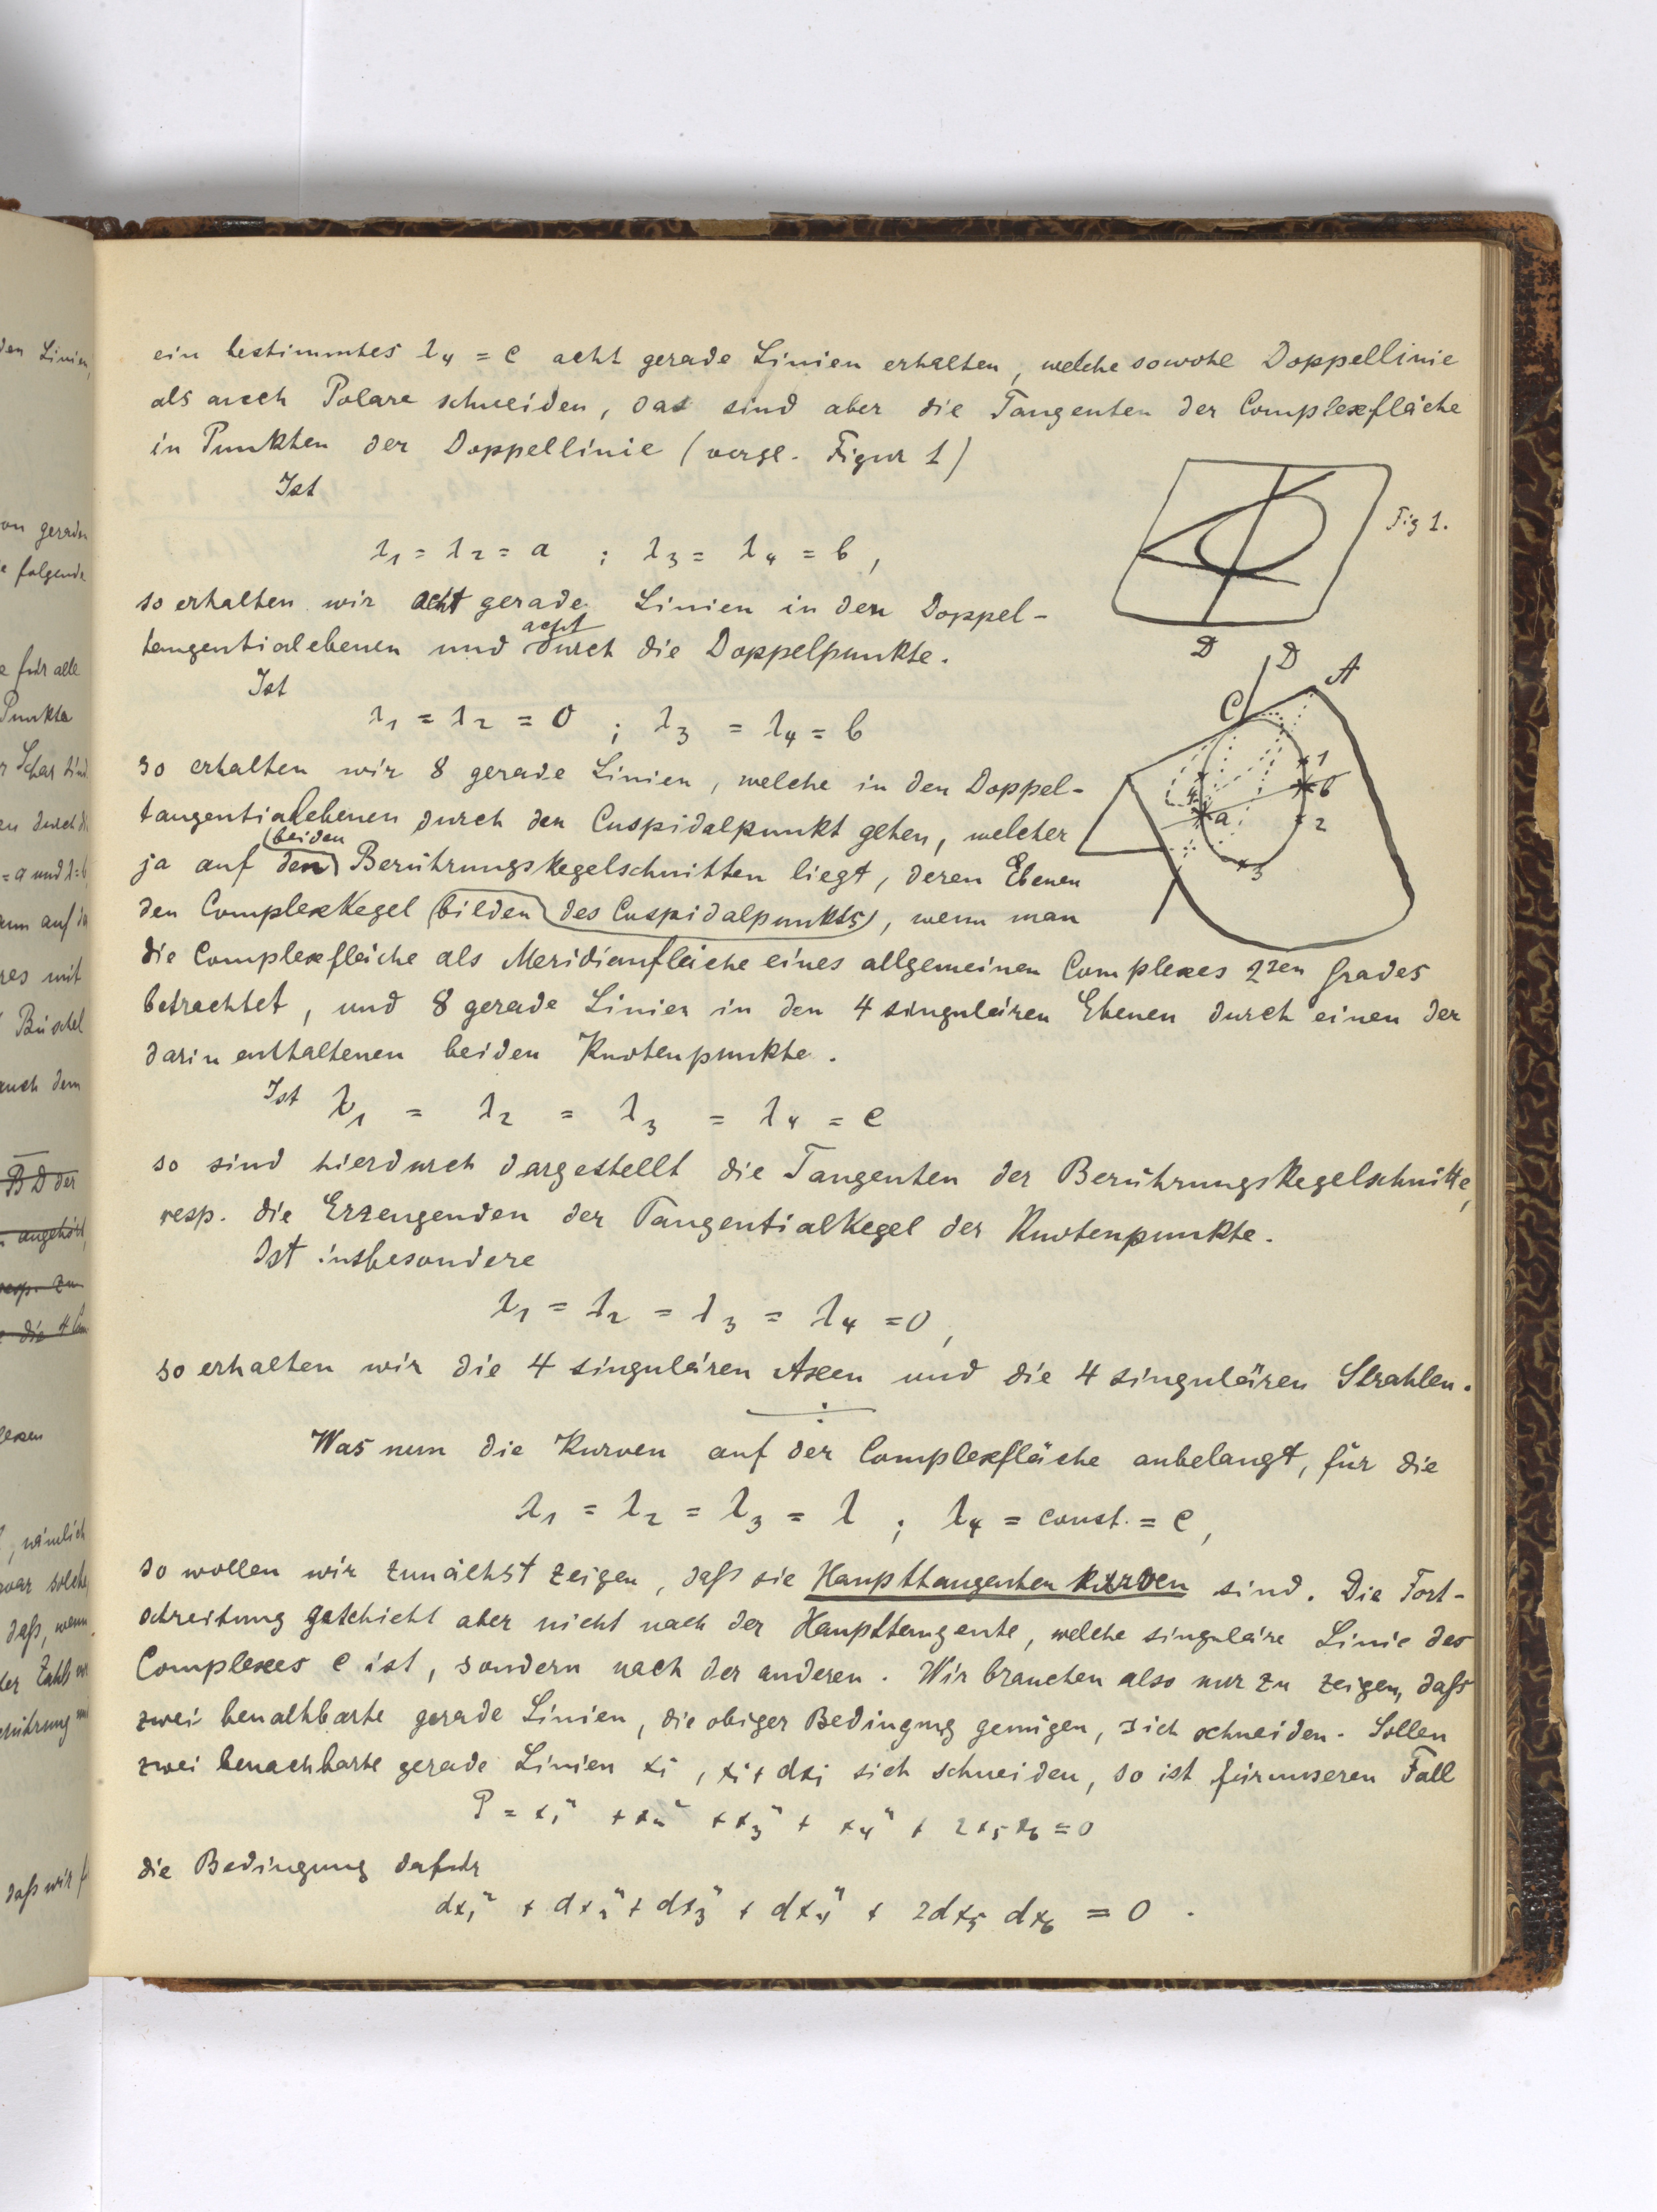 ein bestimmtes λ₄ = c acht gerade Linien erhalten, welche sowohl Doppellinie
als auch Polare schneiden, das sind aber die Tangenten der Complexfläche
in Punkten der Doppellinie (vergl. Figur 1)
Ist
Fig 1.
λ₁ = λ₂ = a ; λ₃ = λ₄ = b,
so erhalten wir acht gerade Linien in den Doppel-
tangentialebenen und acht durch die Doppelpunkte.
D
D
A
C
1
b
4
a
2
3
Ist
λ₁ = λ₂ = 0 ; λ₃ = λ₄ = b
so erhalten wir 8 gerade Linien, welche in den Doppel-
tangentialebenen durch den Cuspidalpunkt gehen, welcher
ja auf den beiden Berührungskegelschnitten liegt, deren Ebenen
den Complexkegel bilden des Cuspidalpunkts, wenn man
die Complexfläche als Meridianfläche eines allgemeinen Complexes 2ten Grades
betrachtet, und 8 gerade Linien in den 4 singulären Ebenen durch einen der
darin enthaltenen beiden Knotenpunkte.
Ist λ₁ = λ₂ = λ₃ = λ₄ = c
so sind hierdurch dargestellt die Tangenten der Berührungskegelschnitte,
resp. die Erzeugenden der Tangentialkegel der Knotenpunkte.
Ist insbesondere
λ₁ = λ₂ = λ₃ = λ₄ = 0,
so erhalten wir die 4 singulären Axen und die 4 singulären Strahlen.
Was nun die Kurven auf der Complexfläche anbelangt, für die
λ₁ = λ₂ = λ₃ = λ ; λ₄ = const. = c,
so wollen wir zunächst zeigen, daß sie Haupttangentenkurven sind. Die Fort-
schreitung geschieht aber nicht nach der Haupttangente, welche singuläre Linie des
Complexes c ist, sondern nach der anderen. Wir brauchen also nur zu zeigen, daß
zwei benachbarte gerade Linien, die obiger Bedingung genügen, sich schneiden. Sollen
zwei benachbarte gerade Linien xi, xi + dxi sich schneiden, so ist für unseren Fall
P = x₁² + x₂² + x₃² + x₄² + 2x₅x₆ = 0
die Bedingung dafür
dx₁² + dx₂² + dx₃² + dx₄² + 2dx₅ dx₆ = 0.
den Linien,
von geraden
folgende
für alle
Punkte
= a und λ = b
mit
Büschel
auch dem
BD der
angehört,
resp. zu
die 4
, nämlich
zwar solche
daß, wenn
der Zahl
daß wir